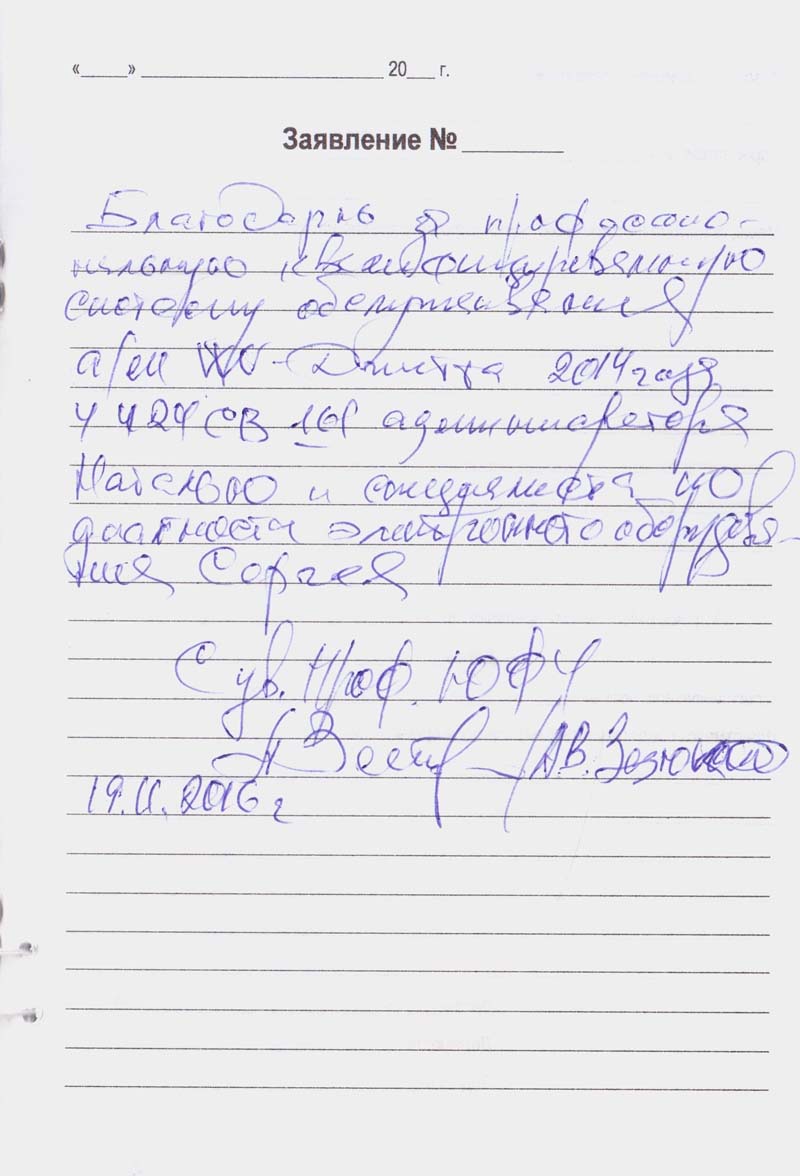 «____» ____________ 20___ г.
Заявление № ______
Благодарю за профессио-
нальную квалифицированную
систему обслуживания
а/м VW-Джетта 2014 года
У 424 СВ 161 администратора
Наталью и специалиста по
электронного оборудова-
ния Сергея
С ув. Проф. ЮФУ
А.В.
19.11.2016 г